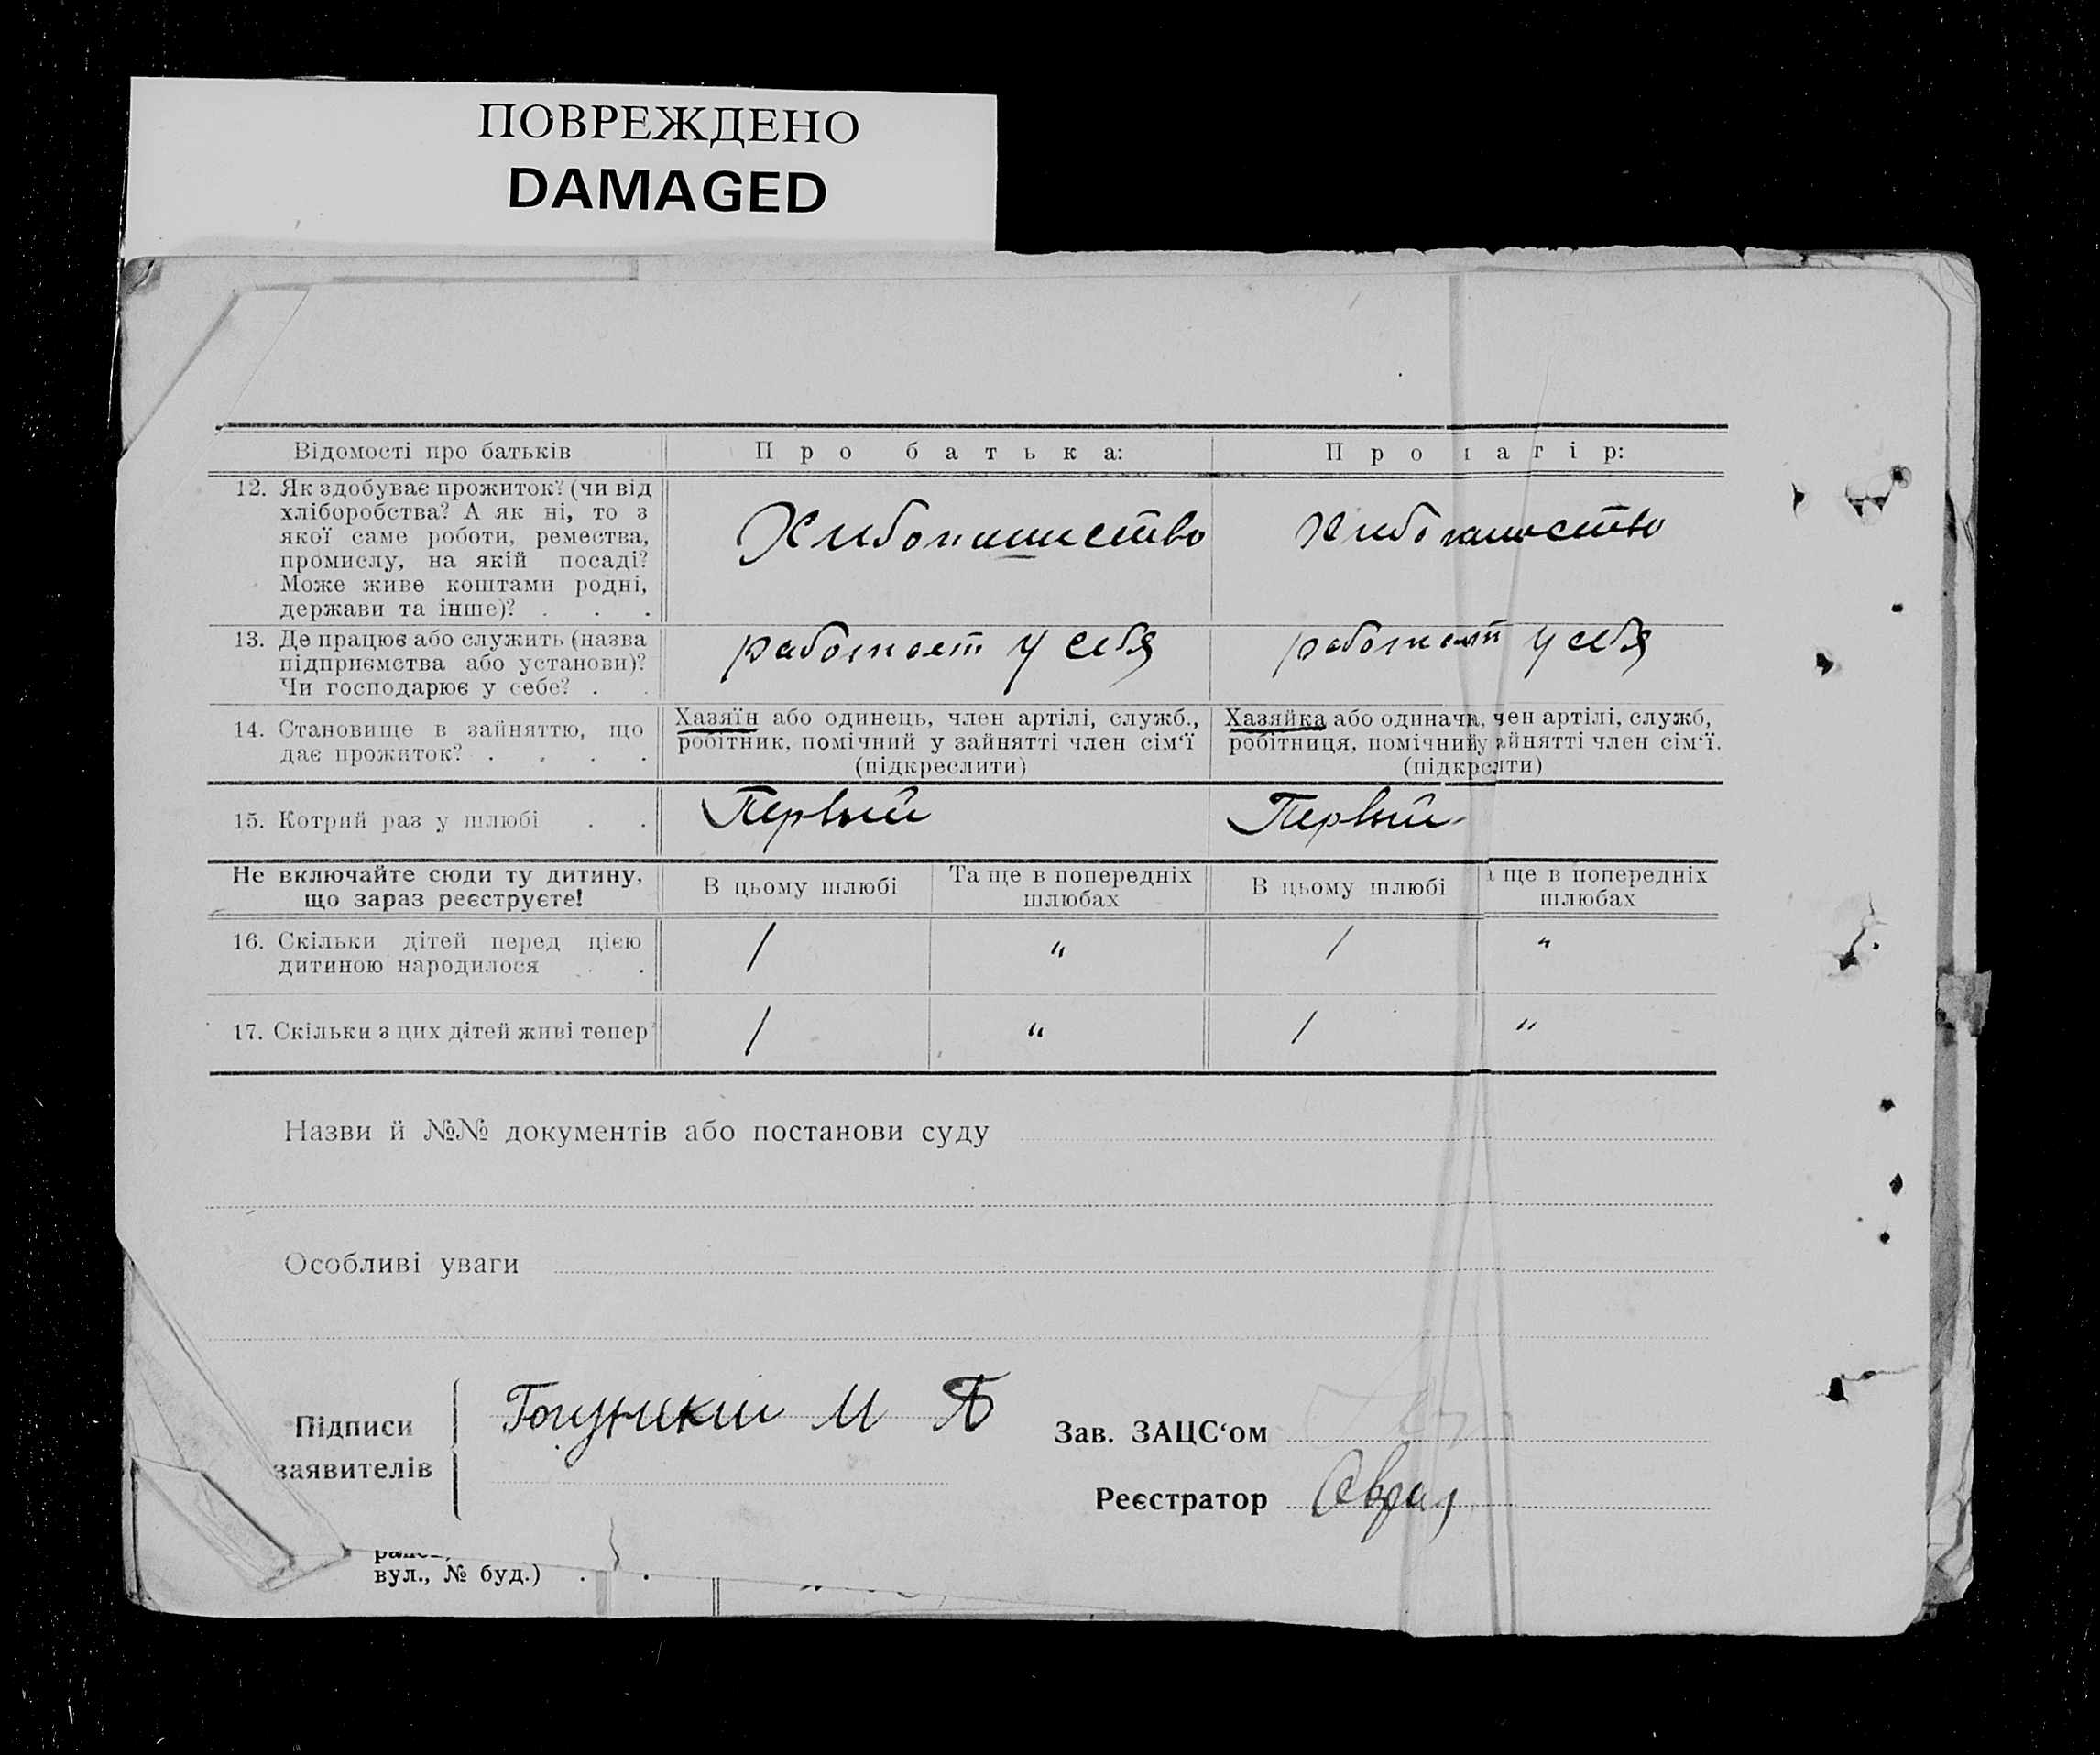 ПОВРЕЖДЕНО
DAMAGED
Відомості про батьків
Про батька:
Про атір:
12. Як здобуває прожиток? (чи від
хліборобства? А як ні, то з
якої саме роботи, ремества,
промислу, на якій посаді?
Може живе коштами родні,
держави та інше)? . . .
Хлебопашество
Хлебопашество
13. Де працює або служить (назва
підприємства або установи)?
Чи господарює у себе? . .
работает у себя
работает у себя
14. Становище в зайняттю, що
дає прожиток? . . . .
Хазяїн або одинець, член артілі, служб.,
робітник, помічний у зайнятті член сім‘ї
(підкреслити)
Хазяйка або одиначк, чен артілі, служб,
робітниця, помічний у айнятті член сім‘ї.
(підкрслти)
15. Котрий раз у шлюбі . .
Первый
Первый
Не включайте сюди ту дитину,
що зараз реєструєте!
В цьому шлюбі
Та ще в попередніх
шлюбах
В цьому шлюбі
а ще в попередніх
шлюбах
16. Скільки дітей перед цією
дитиною народилося . .
/ " / "
17. Скільки з цих дітей живі тепер
/ " / "
Назви й №№ документів або постанови суду
Особливі уваги
Підписи
заявителів
М
Зав. ЗАЦС‘ом
Реєстратор
вул., № буд.) . .